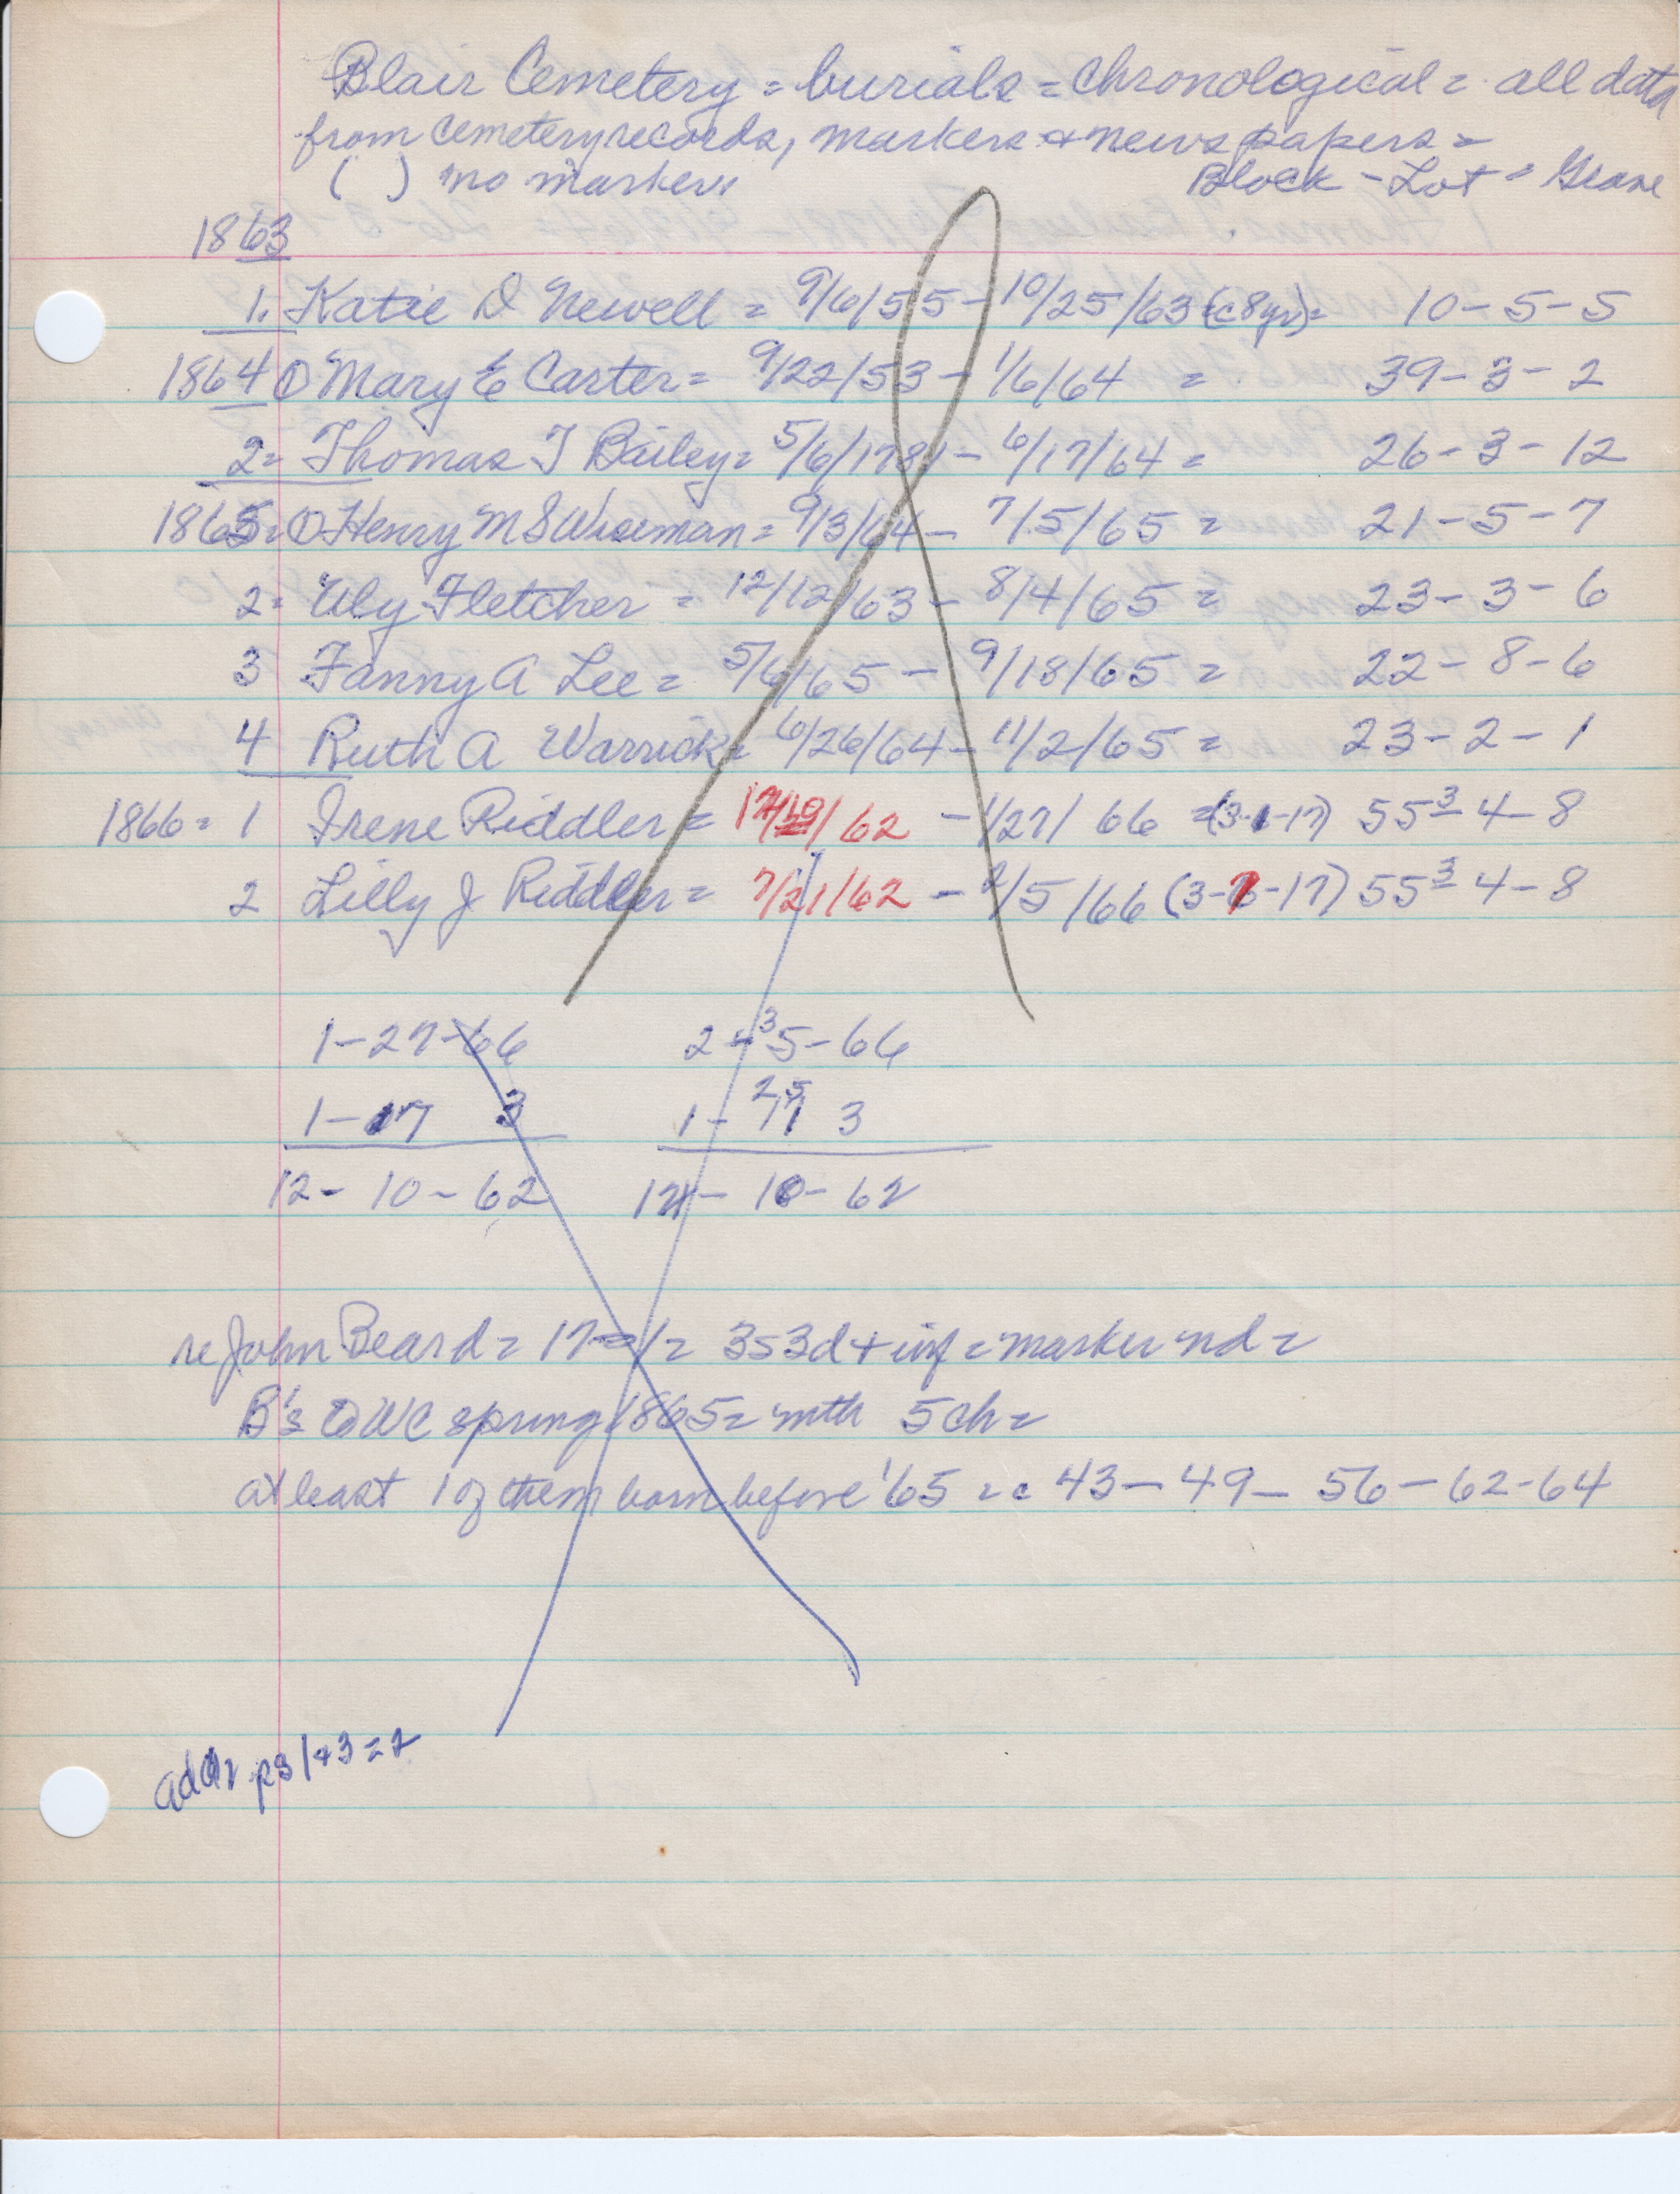 Blair Cemetery = burials = chronological = all data
from cemetery records, markers + newspapers =
( ) no markers Block - Lot = Grave
1863
1. Katie D Newell = 9/6/55 - 10/25/63 (c8yr) = 10-5-5
1864 ① Mary E Carter = 9/22/53 - 1/6/64 = 39-3-2
2= Thomas T Bailey = 5/6/1781 - 6/17/64 = 26-3-12
1865= ① Henry M S Wiseman = 9/3/64 - 7/5/65 = 21-5-7
2= Fletcher = 12/12/63 - 8/4/65 = 23-3-6
3 Fanny A Lee = 5/6/65 - 9/18/65 = 22-8-6
4 Ruth A Warrick = 6/26/64 - 11/2/65 = 23-2-1
1866= 1 Irene Riddler = 12/10/62 - 1/27/66 = (3-1-17) 55³ 4-8
2 Lilly J Riddler = 7/21/62 - 2/5/66 (3-7-17) 55³ 4-8
1-27-66 2-³5-66
1-17 3 1- 3
12-10-62 12-10-62
re John Beard = 17= 1= 3s3d + inf = marker nd =
B's to WC spring 1865 = mth 5ch =
at least 1 of them born before '65 = c 43-49-56-62-64
pg 1+3=2